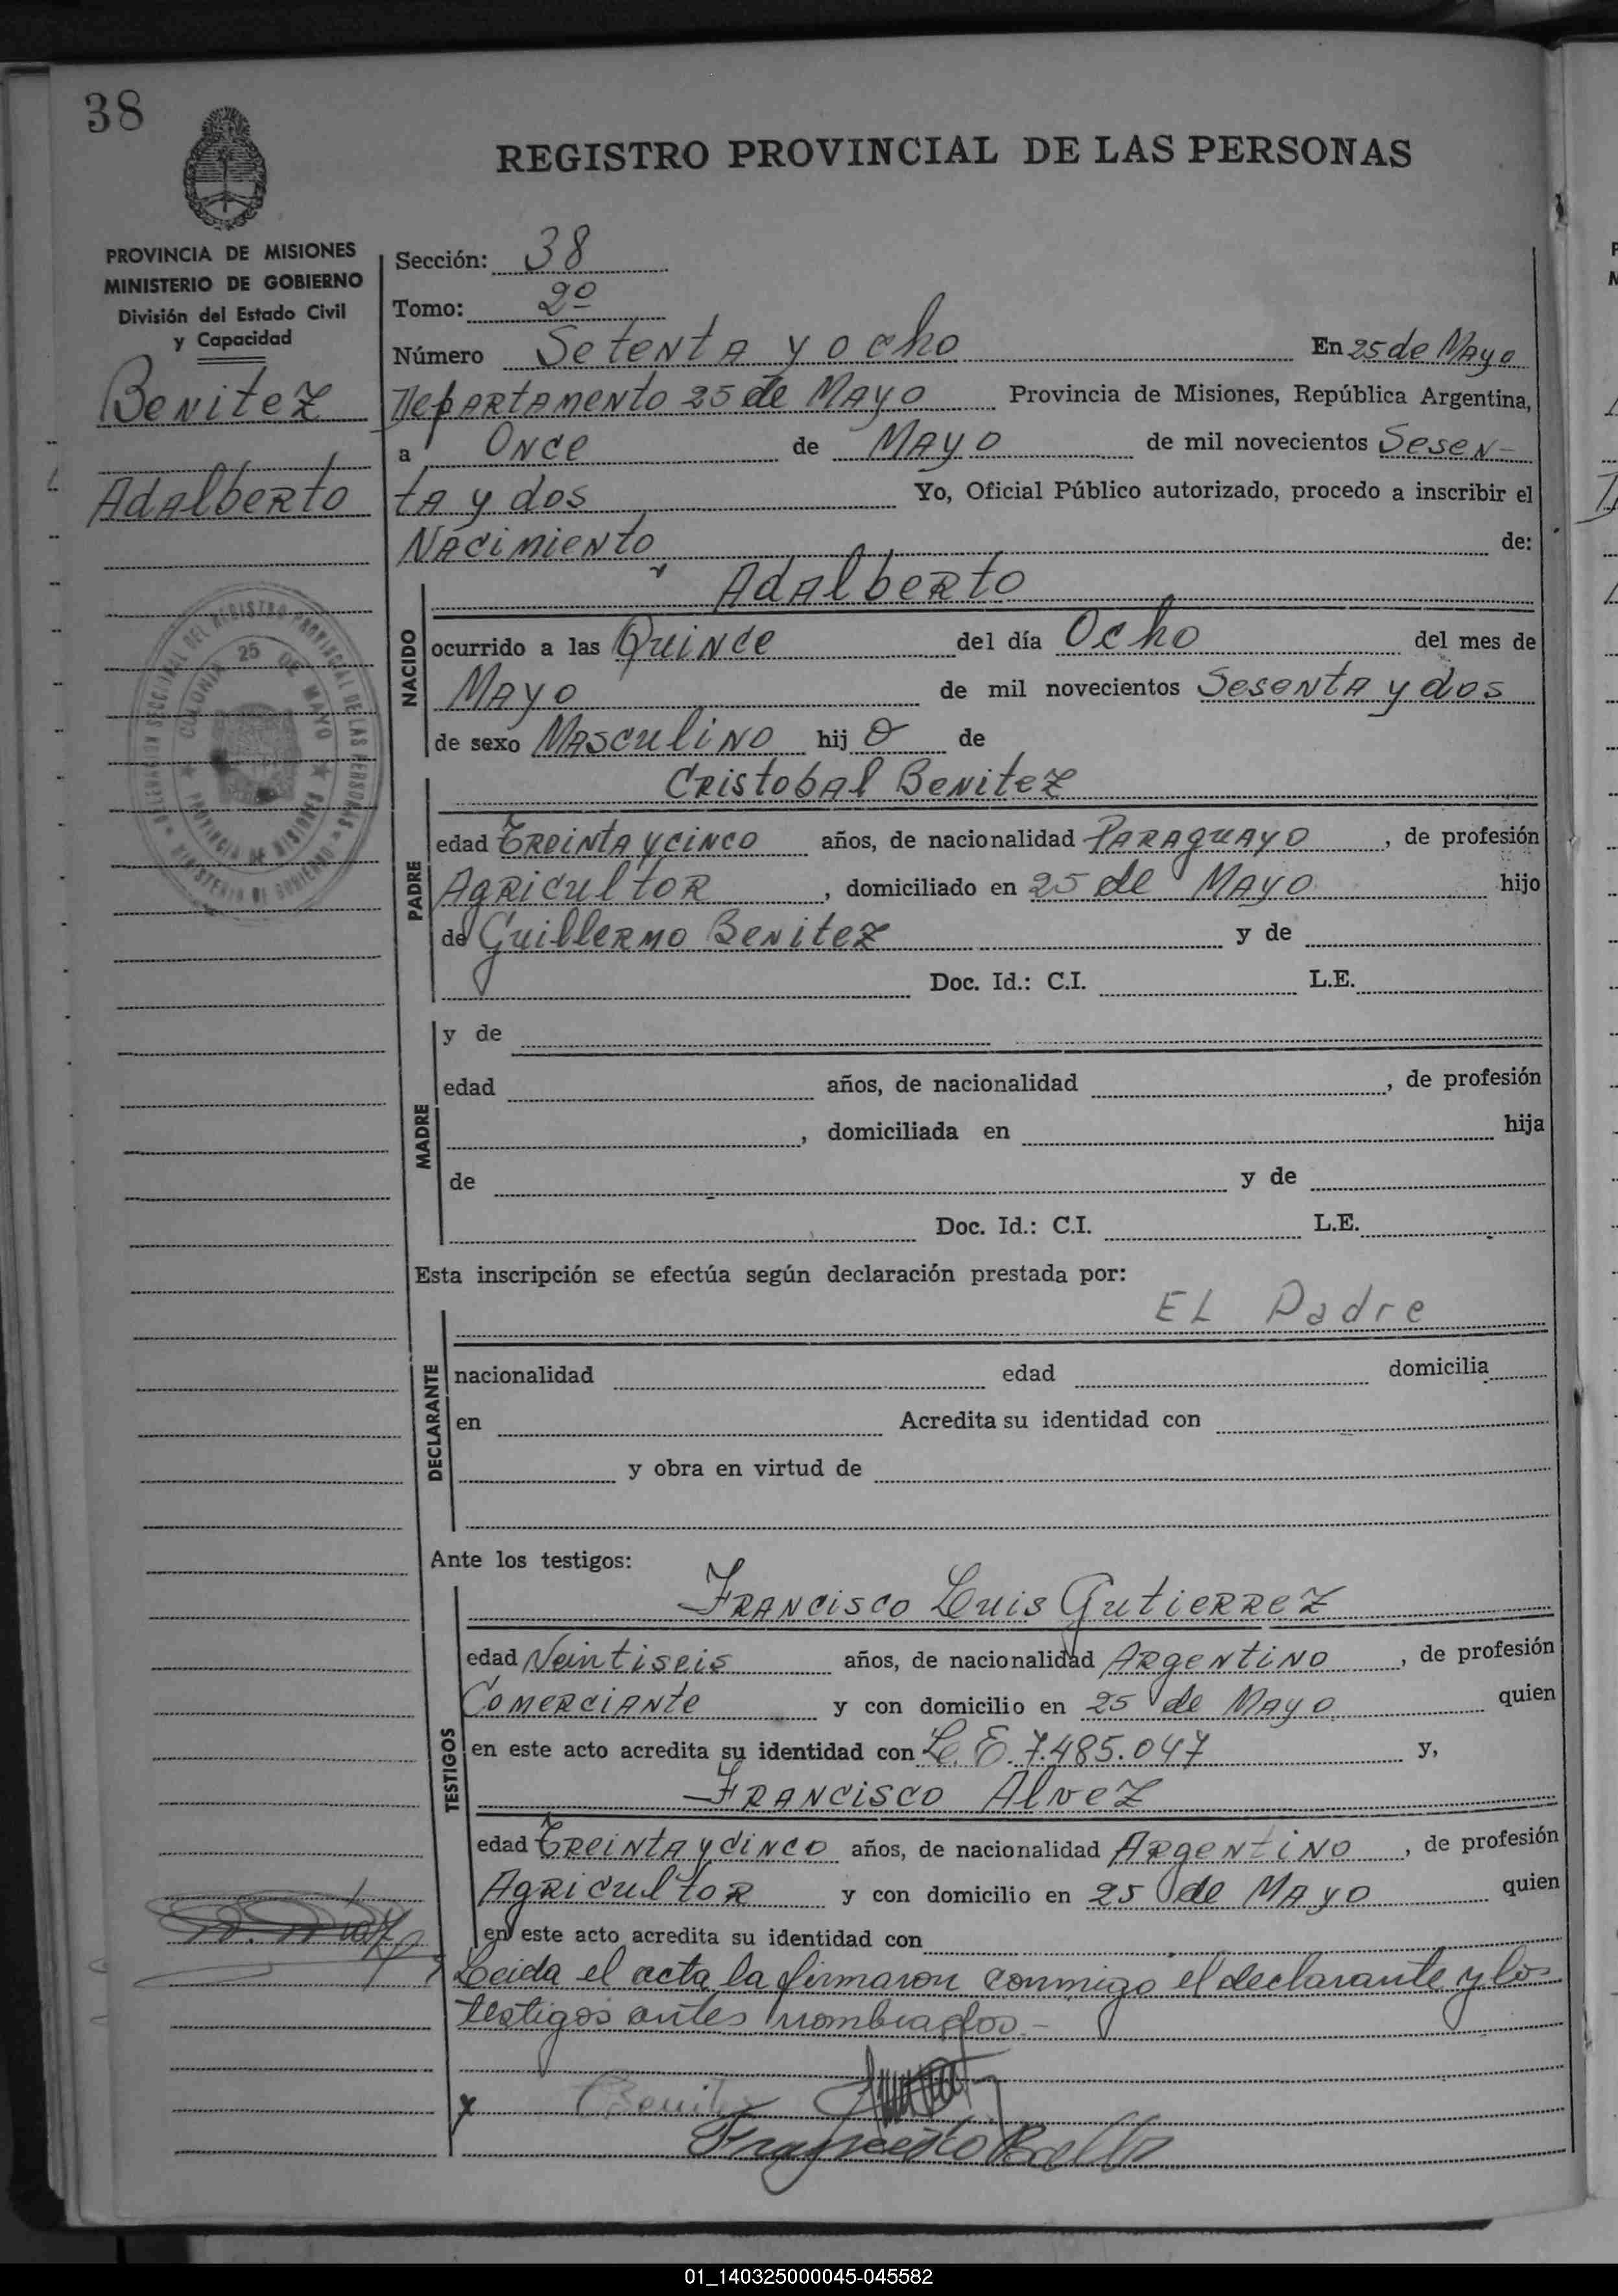 38
REGISTRO PROVINCIAL DE LAS PERSONAS
PROVINCIA DE MISIONES
MINISTERIO DE GOBIERNO
División del Estado Civil
y Capacidad
Benitez
Adalberto
Sección: 38
Tomo: 2º
Número Setenta y ocho En 25 de Mayo
Departamento 25 de Mayo Provincia de Misiones, República Argentina,
a Once de Mayo de mil novecientos Sesen-
ta y dos Yo, Oficial Público autorizado, procedo a inscribir el
Nacimiento de:
NACIDO
Adalberto
ocurrido a las Quince del día Ocho del mes de
Mayo de mil novecientos Sesenta y dos
de sexo Masculino hij o de
PADRE
Cristobal Benitez
edad Treinta y cinco años, de nacionalidad Paraguayo, de profesión
Agricultor, domiciliado en 25 de Mayo hijo
de Guillermo Benitez y de
Doc. Id.: C.I. L.E.
MADRE
y de
edad años, de nacionalidad , de profesión
, domiciliada en hija
de y de
Doc. Id.: C.I. L.E.
Esta inscripción se efectúa según declaración prestada por:
DECLARANTE
EL Padre
nacionalidad edad domicilia
en Acredita su identidad con
y obra en virtud de
Ante los testigos:
TESTIGOS
Francisco Luis Gutierrez
edad Veintiseis años, de nacionalidad Argentino, de profesión
Comerciante y con domicilio en 25 de Mayo quien
en este acto acredita su identidad con L.E. 7.485.047 y,
Francisco Alvez
edad Treinta y cinco años, de nacionalidad Argentino, de profesión
Agricultor y con domicilio en 25 de Mayo quien
en este acto acredita su identidad con
Leida el acta la firmaron conmigo el declarante y los
testigos antes nombrados.-
COLONIA 25 DE MAYO
PROVINCIA DE MISIONES
MINISTERIO DE GOBIERNO
01_140325000045-045582